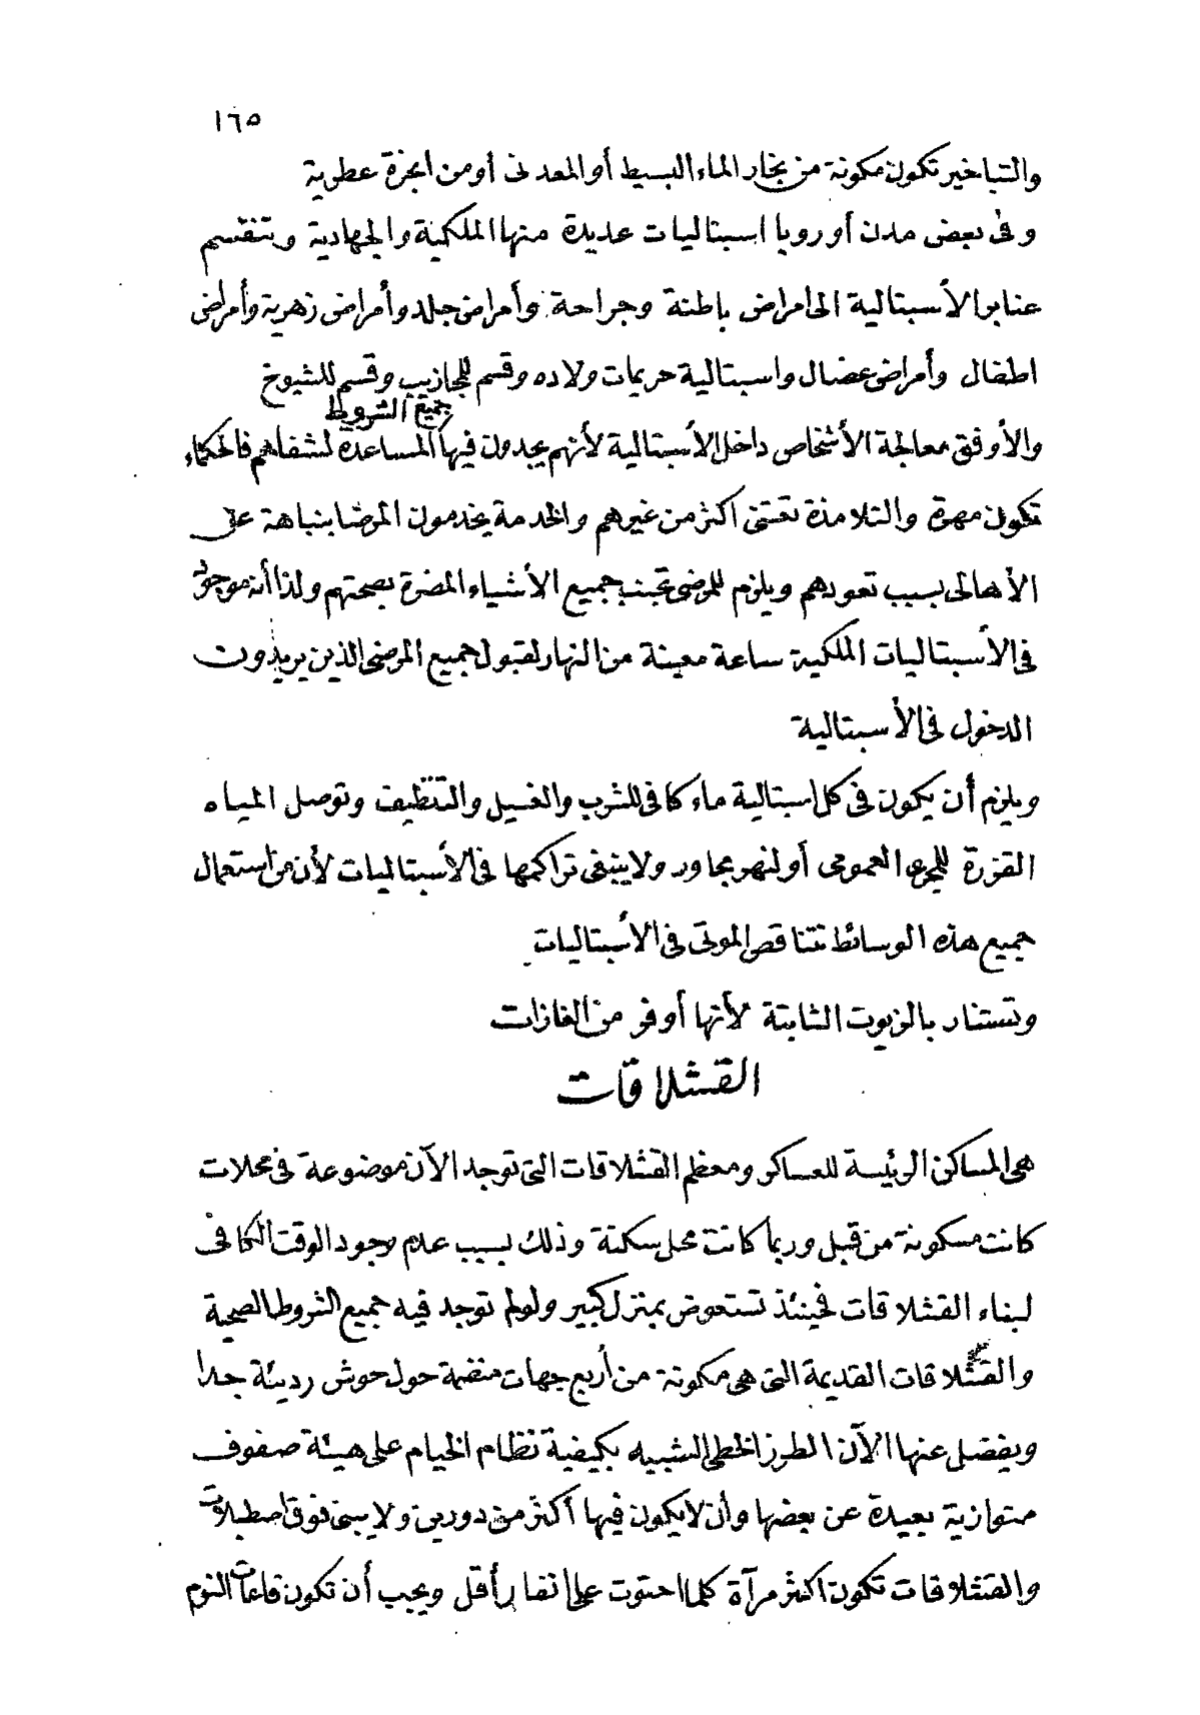 ١٦٥
والتباخير تكون مكونة من بخار الماء البسيط أو المعدنى أو من ابخرة عطرية
وفى بعض مدن أوروبا اسبتاليات عديدة منها الملكية والجهادية وتنقسم
عنابر الأسبتالية الى امراض باطنة وجراحة وأمراض جلد وأمراض زهرية وأمراض
اطفال وأمراض عضال واسبتالية حريمات ولاده وقسم للمجاذيب وقسم للشيوخ
جميع الشروط
والأوفق معالجة الأشخاص داخل الأسبتالية لأنهم يجدون فيها المساعدة لشفاهم فالحكماء
تكون مهرة والتلامذة تعتنى اكثر من غيرهم والخدمة يخدمون المرضا بنباهة عن
الأهالى بسبب تعودهم ويلزم للمرضى تجنب جميع الأشياء المضرة بصحتهم ولذا أنه موجود
فى الأسبتاليات الملكية ساعة معينة من النهار لقبول جميع المرضى الذين يريدون
الدخول فى الأسبتالية
ويلزم أن يكون فى كل اسبتالية ماء كافى للشرب والغسيل والتنظيف وتوصل المياه
القذرة للمجرى العمومى أو لنهر مجاور ولا ينبغى تراكمها فى الأسبتاليات لأن من استعمال
جميع هذه الوسائط تتناقص الموتى فى الأسبتاليات
وتستنار بالزيوت الثابتة لأنها أوفر من الغازات
القشلاقات
هى المساكن الرئيسة للعساكر ومعظم القشلاقات التى توجد الآن موضوعة فى محلات
كانت مسكونة من قبل وربما كانت محل سكنة وذلك بسبب عدم وجود الوقت الكافى
لبناء القشلاقات فحينئذ تستعوض بمنزل كبير ولو لم توجد فيه جميع الشروط الصحية
والقشلاقات القديمة التى هى مكونة من أربع جهات منضمة حول حوش رديئة جدا
ويفضل عنها الآن الطرز الخطى الشبيه بكيفية نظام الخيام على هيئة صفوف
متوازية بعيدة عن بعضها وأن لا يكون فيها أكثر من دورين ولا يبنى فوق اصطبلات
والقشلاقات تكون اكثر مرآة كلما احتوت على انفار أقل ويجب أن تكون قاعات النوم